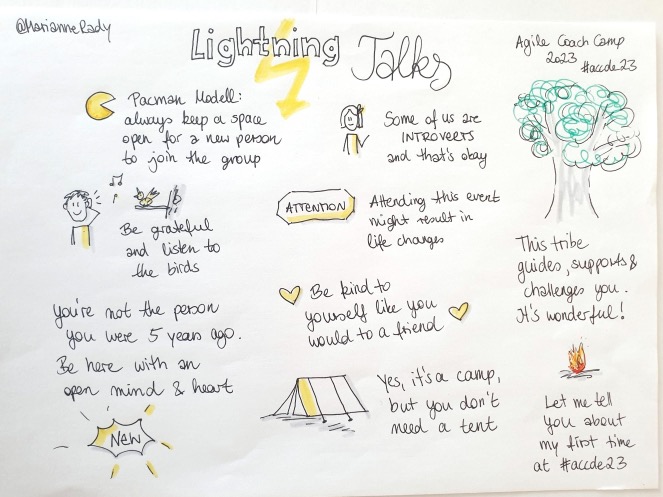 @MarianneRady
Lightning Talks
Agile Coach Camp
2023
#accde23
Pacman Modell:
always keep a space
open for a new person
to join the group
Some of us are
INTROVERTS
and that's okay
Be grateful
and listen to
the birds
ATTENTION
Attending this event
might result in
life changes
This tribe
guides, supports &
challenges you.
It's wonderful!
You're not the person
you were 5 years ago.
Be here with an
open mind & heart
New
Be kind to
yourself like you
would to a friend
Yes, it's a camp,
but you don't
need a tent
Let me tell
you about
my first time
at #accde23